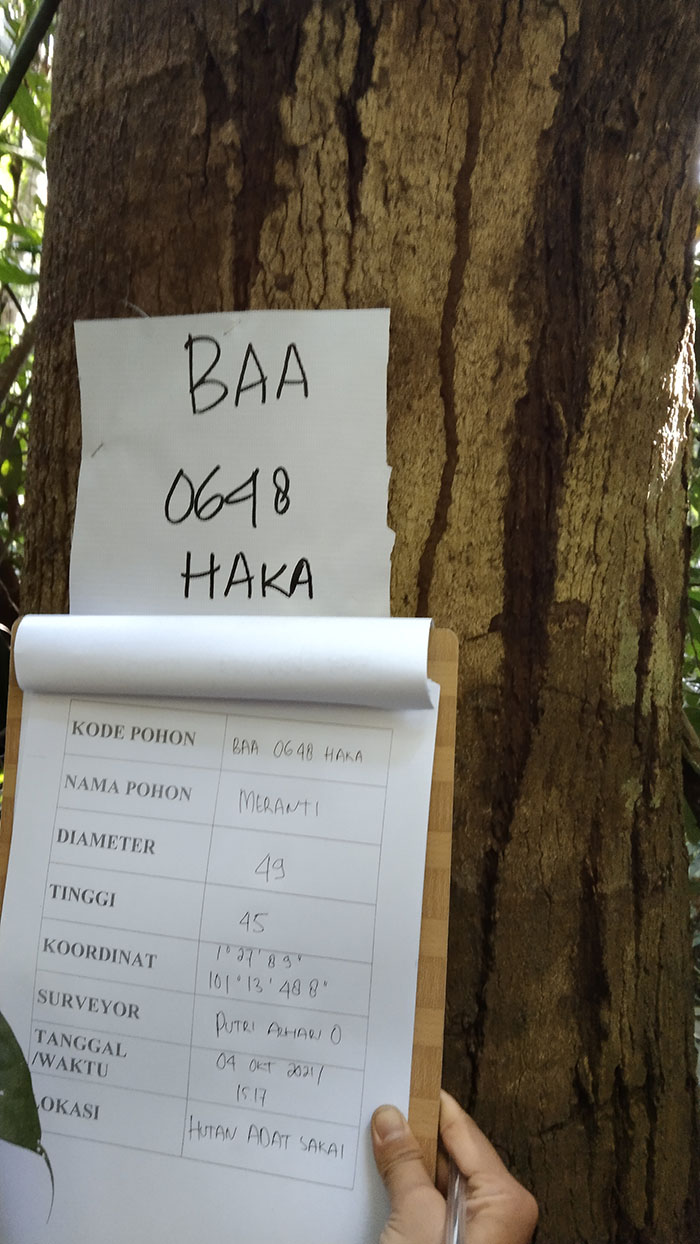 BAA
0648
HAKA
KODE POHON BAA 0648 HAKA
NAMA POHON MERANTI
DIAMETER 49
TINGGI 45
KOORDINAT 1° 27' 89"
101° 13' 488"
SURVEYOR PUTRI
TANGGAL 04 OKT 2021/
/WAKTU 1517
LOKASI HUTAN ADAT SAKAI